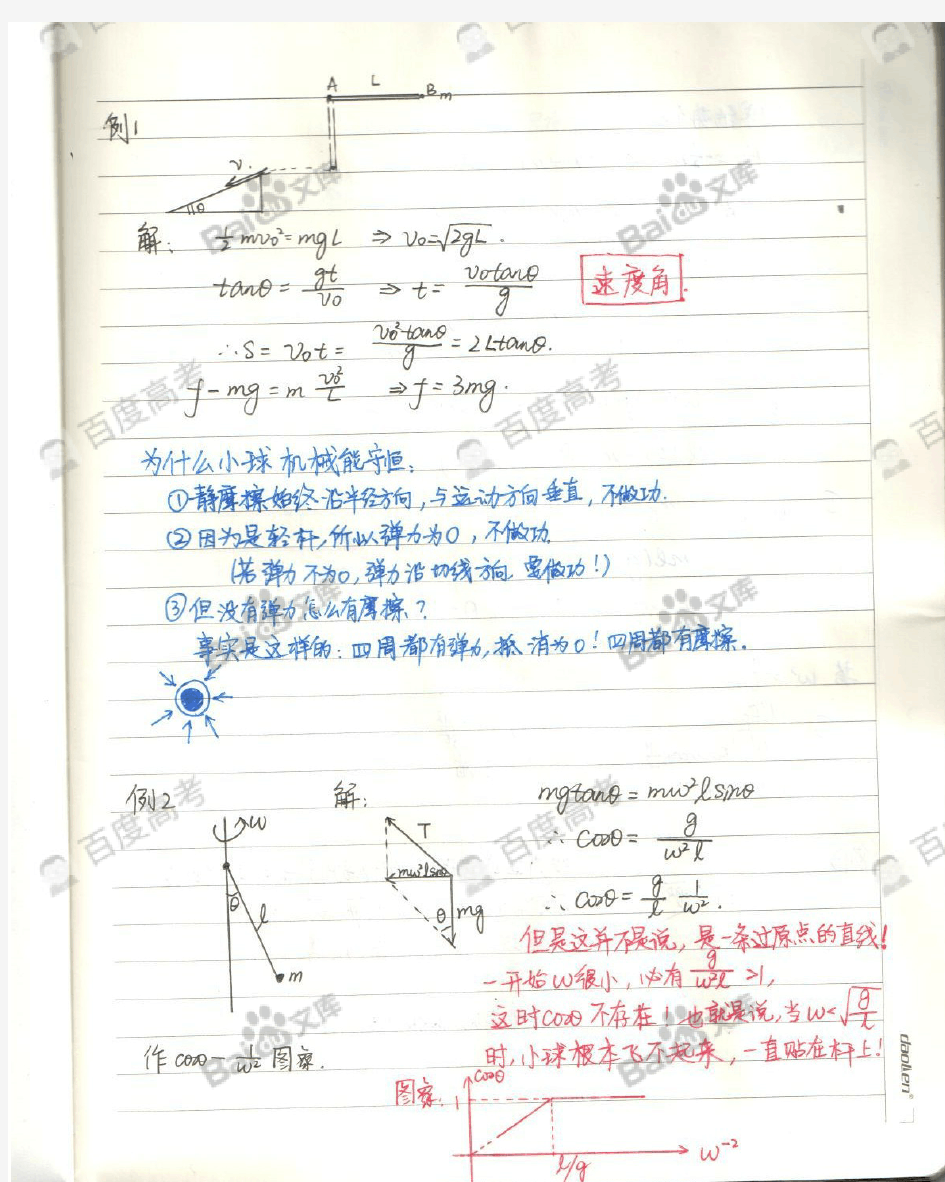 A L B m
例1
v
θ
解: ½mv₀²=mgL ⇒ v₀=√2gL.
tanθ = gt/v₀ ⇒ t= v₀tanθ/g 速度角.
∴S= v₀t= v₀²tanθ/g = 2Ltanθ.
f-mg=m v₀²/L ⇒ f=3mg.
为什么小球机械能守恒:
①静摩擦始终沿半径方向,与运动方向垂直,不做功.
②因为是轻杆,所以弹力为0,不做功.
(若弹力不为0,弹力沿切线方向.要做功!)
③但没有弹力怎么有摩擦?
事实是这样的:四周都有弹力,抵消为0!四周都有摩擦.
例2 解: mgtanθ=mω²lsinθ
ω
T
∴cosθ= g/ω²l
mω²lsinθ
θ l
θ mg
∴cosθ= g/l 1/ω².
m
但是这并不是说,是一条过原点的直线!
一开始ω很小,必有 g/ω²l >1,
这时cosθ不存在!也就是说,当ω<√g/l
作cosθ-1/ω²图象.
时,小球根本飞不起来,一直贴在杆上!
图象:
cosθ
1
l/g
ω⁻²
daolen®
Baidu文库
百度高考